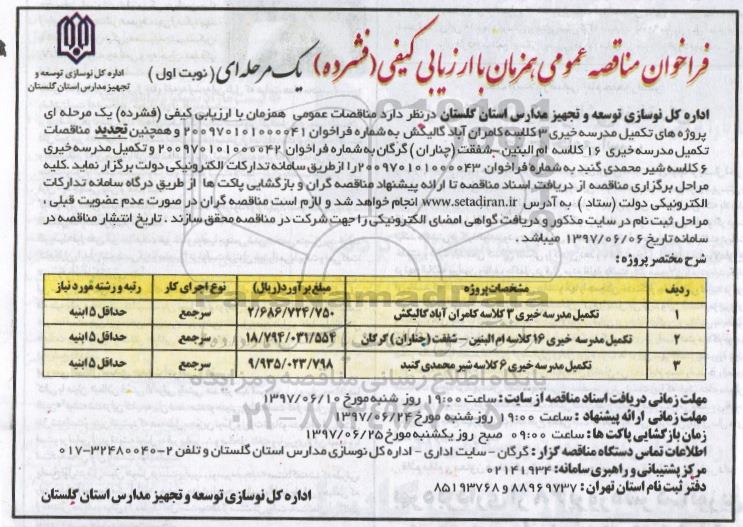 فراخوان مناقصه عمومی همزمان با ارزیابی کیفی (فشرده) یک مرحله ای (نوبت اول)
اداره کل نوسازی توسعه و
تجهیز مدارس استان گلستان
اداره کل نوسازی توسعه و تجهیز مدارس استان گلستان درنظر دارد مناقصات عمومی همزمان با ارزیابی کیفی (فشرده) یک مرحله ای
پروژه های تکمیل مدرسه خیری ۳ کلاسه کامران آباد گالیکش به شماره فراخوان ۲۰۰۹۷۰۱۰۱۰۰۰۰۴۱ و همچنین تجدید مناقصات
تکمیل مدرسه خیری ۱۶ کلاسه ام البنین – شفقت (چناران) گرگان به شماره فراخوان ۲۰۰۹۷۰۱۰۱۰۰۰۰۴۲ و تکمیل مدرسه خیری
۶ کلاسه شیر محمدی گنبد به شماره فراخوان ۲۰۰۹۷۰۱۰۱۰۰۰۰۴۳ را ازطریق سامانه تدارکات الکترونیکی دولت برگزار نماید. کلیه
مراحل برگزاری مناقصه از دریافت اسناد مناقصه تا ارائه پیشنهاد مناقصه گران و بازگشایی پاکت ها از طریق درگاه سامانه تدارکات
الکترونیکی دولت (ستاد) به آدرس www.setadiran.ir انجام خواهد شد و لازم است مناقصه گران در صورت عدم عضویت قبلی ،
مراحل ثبت نام در سایت مذکور و دریافت گواهی امضای الکترونیکی را جهت شرکت در مناقصه محقق سازند . تاریخ انتشار مناقصه در
سامانه تاریخ ۱۳۹۷/۰۶/۰۶ میباشد .
شرح مختصر پروژه :
ردیف مشخصات پروژه مبلغ برآورد(ریال) نوع اجرای کار رتبه و رشته مورد نیاز
۱ تکمیل مدرسه خیری ۳ کلاسه کامران آباد گالیکش ۲/۶۸۶/۷۲۴/۷۵۰ سرجمع حداقل ۵ ابنیه
۲ تکمیل مدرسه خیری ۱۶ کلاسه ام البنین – شفقت (چناران) گرگان ۱۸/۷۹۴/۰۳۱/۵۵۴ سرجمع حداقل ۵ ابنیه
۳ تکمیل مدرسه خیری ۶ کلاسه شیر محمدی گنبد ۹/۹۳۵/۰۲۳/۷۹۸ سرجمع حداقل ۵ ابنیه
مهلت زمانی دریافت اسناد مناقصه از سایت : ساعت ۱۹:۰۰ روز شنبه مورخ ۱۳۹۷/۰۶/۱۰
مهلت زمانی ارائه پیشنهاد : ساعت ۱۹:۰۰ روز شنبه مورخ ۱۳۹۷/۰۶/۲۴
زمان بازگشایی پاکت ها : ساعت ۰۹:۰۰ صبح روز یکشنبه مورخ ۱۳۹۷/۰۶/۲۵
اطلاعات تماس دستگاه مناقصه گزار : گرگان – سایت اداری – اداره کل نوسازی مدارس استان گلستان و تلفن ۲-۳۲۴۸۰۰۴۰-۰۱۷
مرکز پشتیبانی و راهبری سامانه: ۰۲۱۴۱۹۳۴
دفتر ثبت نام استان تهران : ۸۸۹۶۹۷۳۷ و ۸۵۱۹۳۷۶۸
اداره کل نوسازی توسعه و تجهیز مدارس استان گلستان